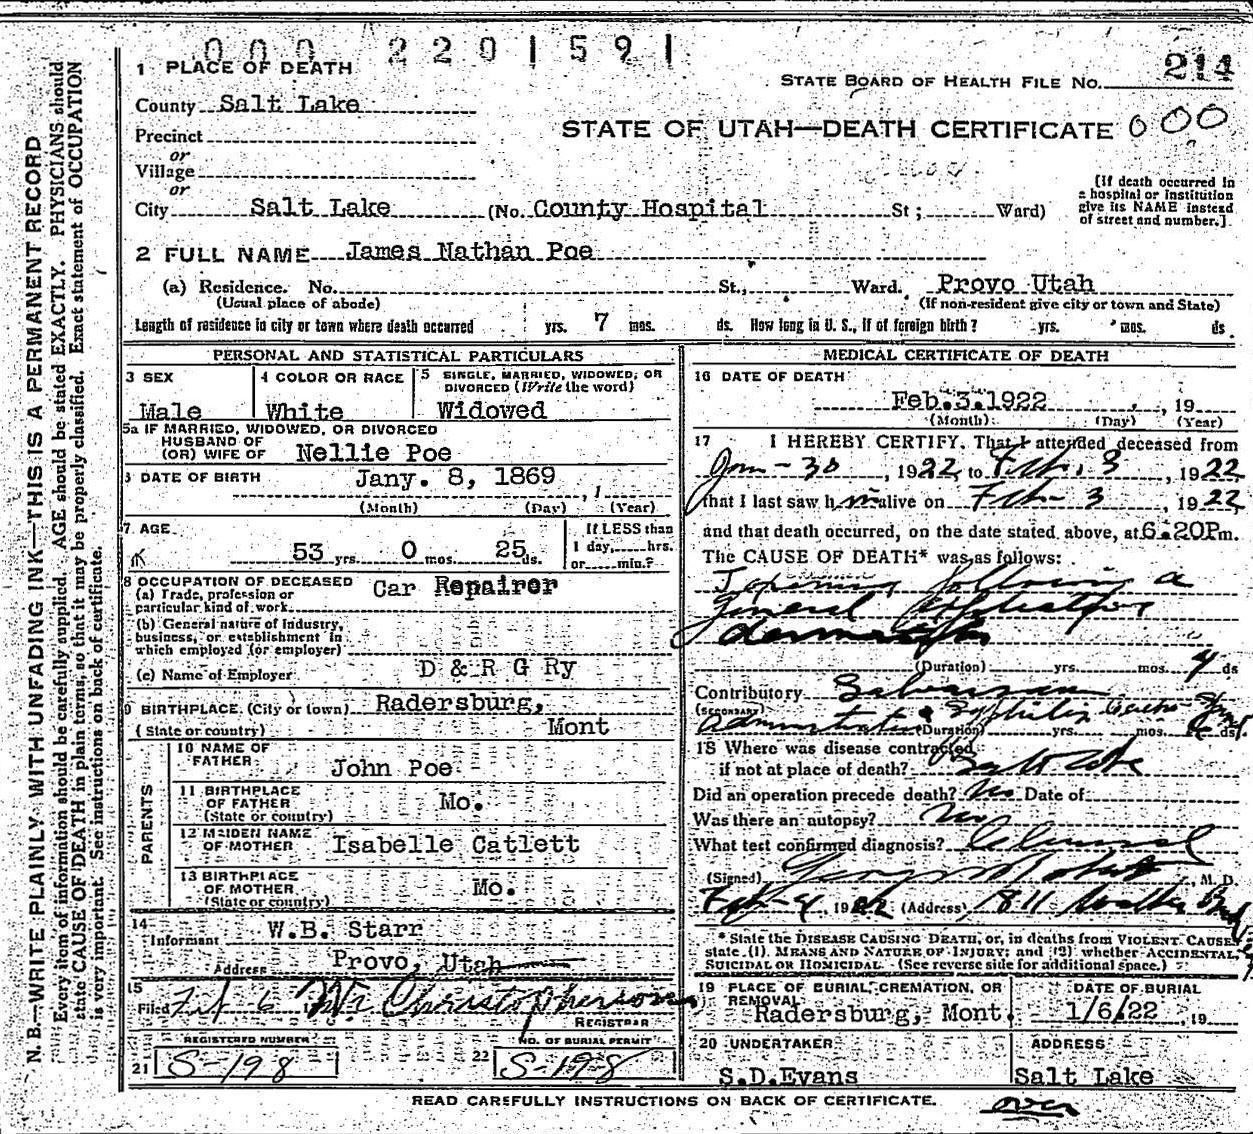 000 2201591
1 PLACE OF DEATH
STATE BOARD OF HEALTH FILE NO. 214
County Salt Lake
STATE OF UTAH—DEATH CERTIFICATE 000
Precinct
or
Village
or
City Salt Lake (No. County Hospital St; Ward)
[If death occurred in a hospital or institution give its NAME instead of street and number.]
2 FULL NAME James Nathan Poe
(a) Residence. No. St., Ward. Provo Utah
(Usual place of abode) (If non-resident give city or town and State)
Length of residence in city or town where death occurred yrs. 7 mos. ds. How long in U. S., if of foreign birth? yrs. mos. ds.
PERSONAL AND STATISTICAL PARTICULARS
3 SEX
Male
4 COLOR OR RACE
White
5 SINGLE, MARRIED, WIDOWED, OR DIVORCED (Write the word)
Widowed
5a IF MARRIED, WIDOWED, OR DIVORCED
HUSBAND OF
(OR) WIFE OF Nellie Poe
DATE OF BIRTH Jany. 8, 1869
(Month) (Day) (Year)
7 AGE
53 yrs. 0 mos. 25 ds.
If LESS than
1 day, hrs.
or min.?
8 OCCUPATION OF DECEASED
(a) Trade, profession or particular kind of work Car Repairer
(b) General nature of industry, business, or establishment in which employed (or employer)
(c) Name of Employer D & R G Ry
9 BIRTHPLACE (City or town) Radersburg,
(State or country) Mont
PARENTS
10 NAME OF FATHER John Poe
11 BIRTHPLACE OF FATHER (State or country) Mo.
12 MAIDEN NAME OF MOTHER Isabelle Catlett
13 BIRTHPLACE OF MOTHER (State or country) Mo.
14 Informant W.B. Starr
Address Provo, Utah
15 Filed Feb 6 Christopherson
REGISTRAR
REGISTERED NUMBER
21 S-198
NO. OF BURIAL PERMIT
22 S-198
MEDICAL CERTIFICATE OF DEATH
16 DATE OF DEATH
Feb.3.1922, 19
(Month) (Day) (Year)
17 I HEREBY CERTIFY, That I attended deceased from
Jan - 30, 1922, to Feb. 3, 1922
that I last saw him alive on Feb - 3, 1922
and that death occurred, on the date stated above, at 6.20P m.
The CAUSE OF DEATH* was as follows:
following a
General Exfoliative
dermatitis
(Duration) yrs. mos. 4 ds
Contributory Salvarsan
(SECONDARY)
Administration
(Duration) yrs. mos. ds.
18 Where was disease contracted
if not at place of death?
Did an operation precede death? No Date of
Was there an autopsy? No
What test confirmed diagnosis? Clinical
(Signed) , M. D.
Feb - 4, 1922 (Address) 811 Walker
* State the DISEASE CAUSING DEATH, or, in deaths from VIOLENT CAUSES state (1) MEANS AND NATURE OF INJURY; and (2) whether ACCIDENTAL, SUICIDAL OR HOMICIDAL (See reverse side for additional space.)
19 PLACE OF BURIAL, CREMATION, OR REMOVAL
Radersburg, Mont.
DATE OF BURIAL
1/6/22, 19
20 UNDERTAKER
S.D.Evans
ADDRESS
Salt Lake
READ CAREFULLY INSTRUCTIONS ON BACK OF CERTIFICATE.
over
N. B.—WRITE PLAINLY WITH UNFADING INK—THIS IS A PERMANENT RECORD
Every item of information should be carefully supplied. AGE should be stated EXACTLY. PHYSICIANS should
state CAUSE OF DEATH in plain terms, so that it may be properly classified. Exact statement of OCCUPATION
is very important. See instructions on back of certificate.